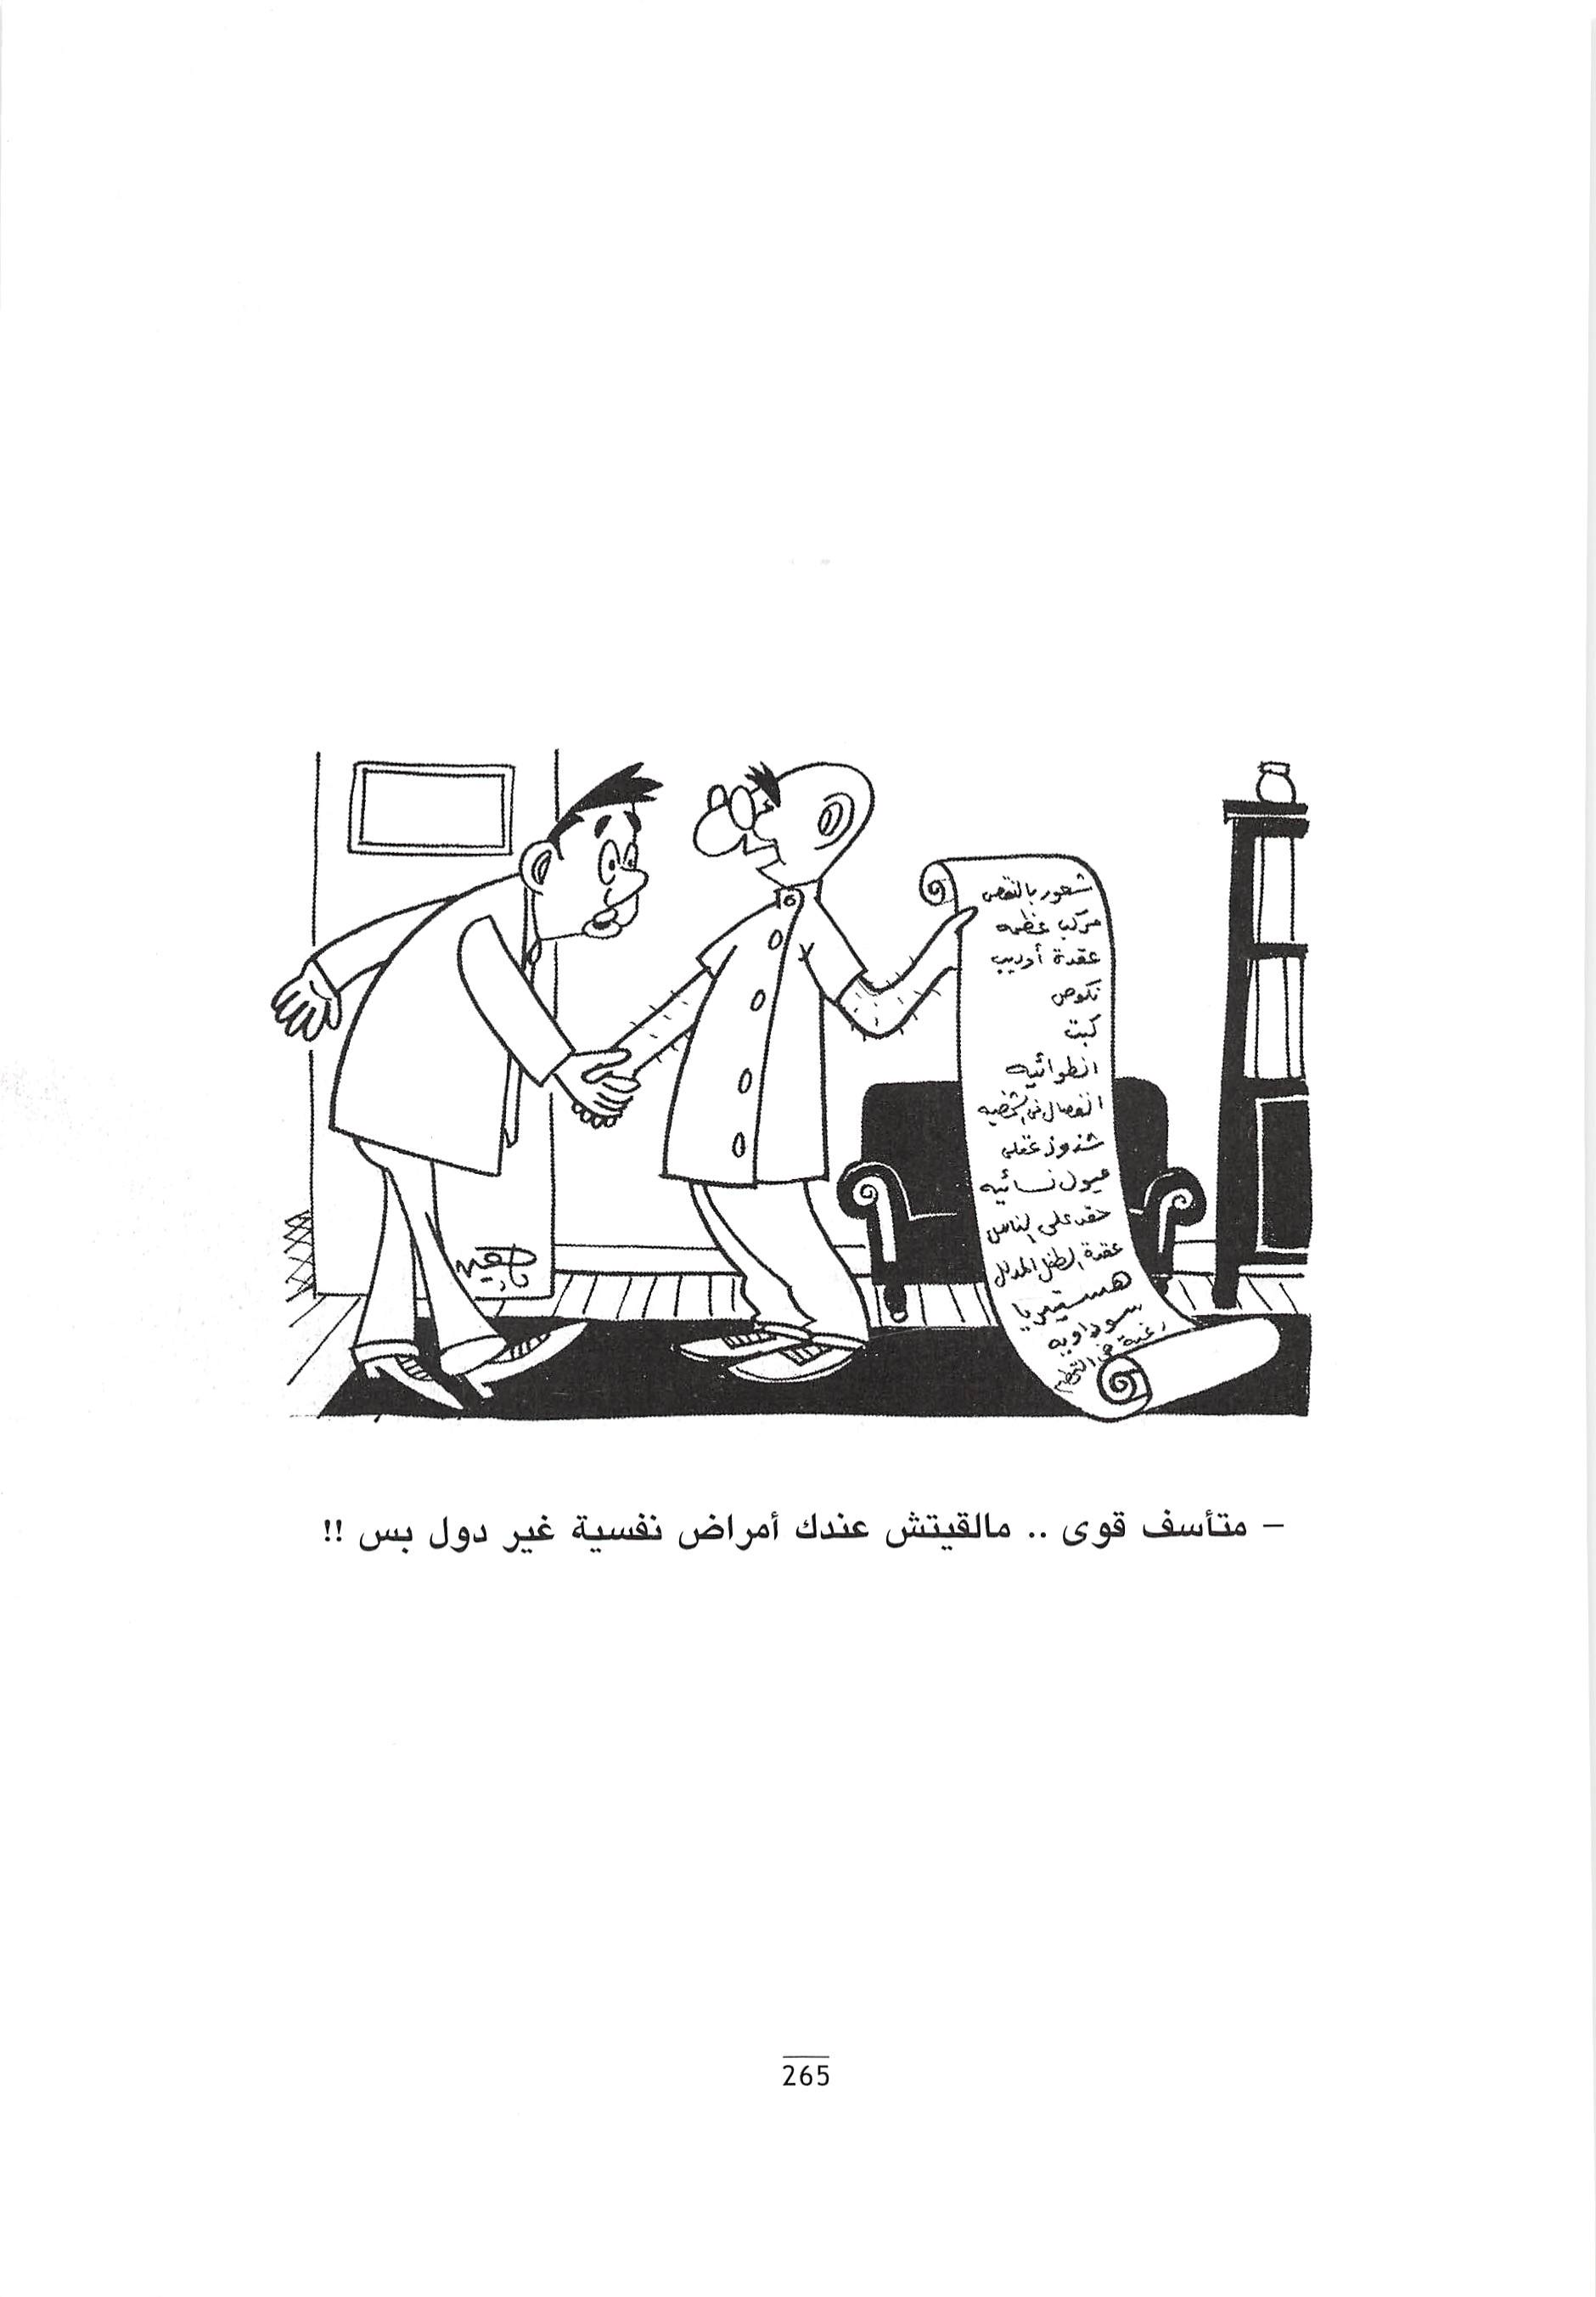 شعور بالنقص
مركب عظمه
عقدة أوديب
نكوص
كبت
انطوائيه
انفصال فى الشخصيه
شذوذ عقلى
ميول نسائيه
حقد على الناس
عقدة الطفل المدلل
هستيريا
سوداويه
رغبة فى التحطيم
بهجت
– متأسف قوى .. مالقيتش عندك أمراض نفسية غير دول بس !!
265